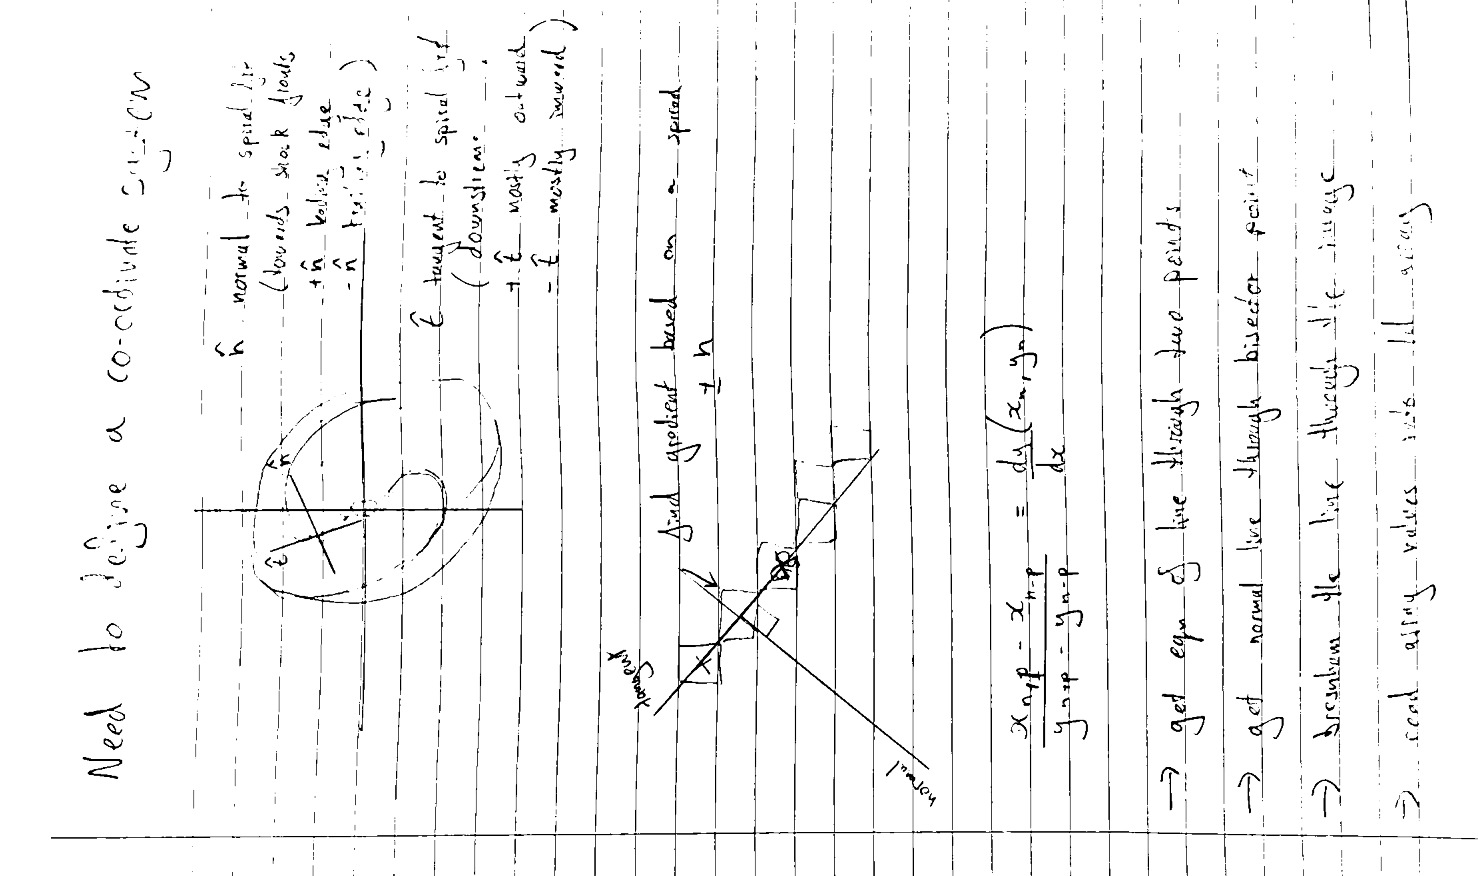 Need to define a co-ordinate system
n̂ normal to spiral
(towards shock fronts
+n̂ leading edge
- n̂ trailing edge)
t̂
n̂
t̂ tangent to spiral
(downstream
+ t̂ mostly outward
- t̂ mostly inward)
tangent
find gradient based on a spread
± n
normal
x_{n+p} - x_{n-p} / y_{n+p} - y_{n-p} = dy/dx (x_n, y_n)
→ get eqn of line through two points
→ get normal line through bisector point
→ bresnham the line through the image
→ read array values into 1d array